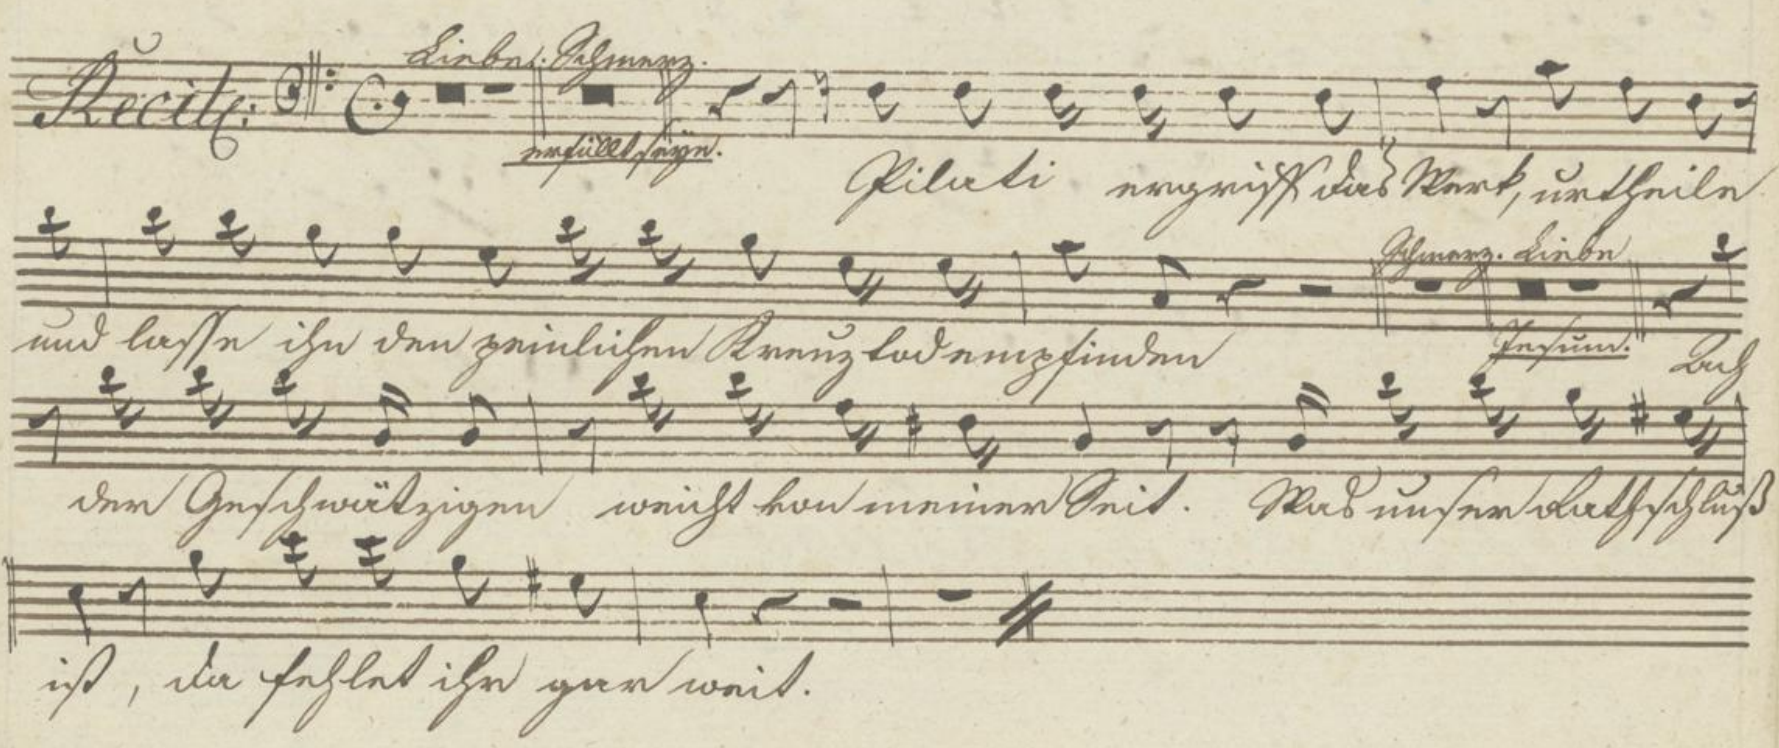 Recit: Liebe. Schmerz.
erfüllt seyn.
Pilati ergriff das Werk, urtheile
Schmerz. Liebe
und lasse ihn den peinlichen Kreuztod empfinden Jesum.
der Geschwätzigen weicht von meiner Seit. Was unser Rathschluß
ist, da fehlet ihr gar weit.